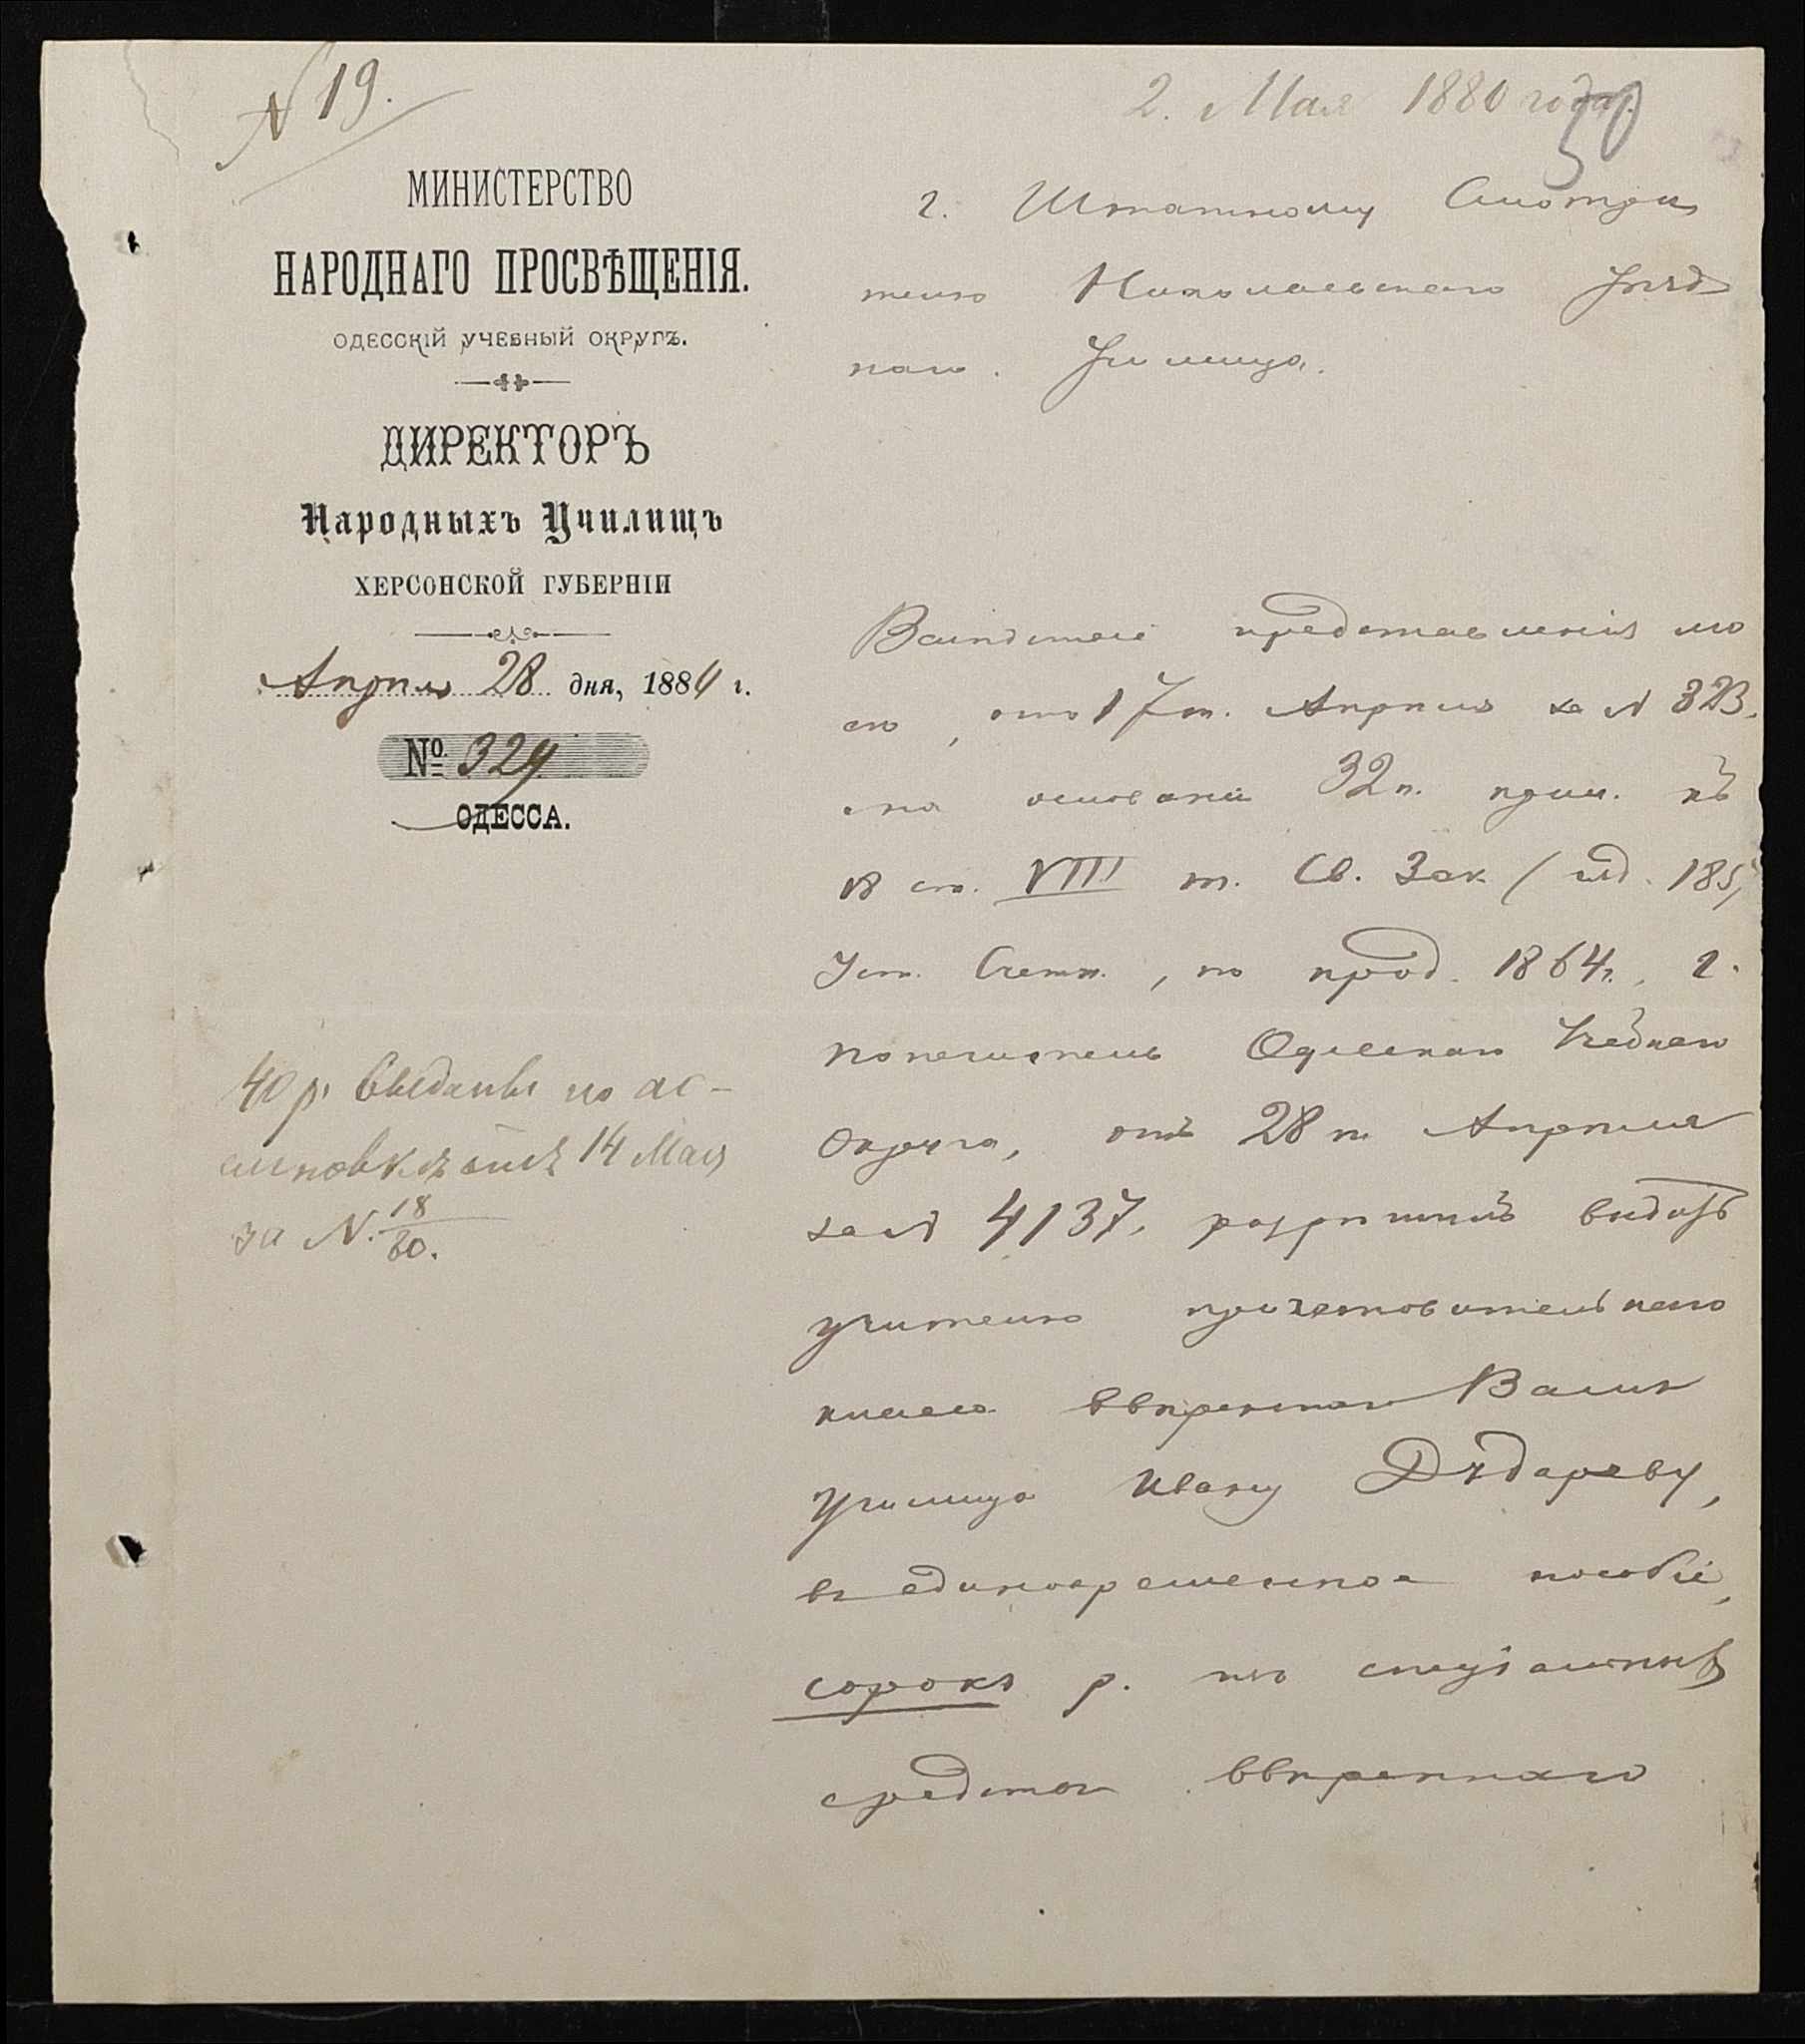 N 19.
2. Мая 1880 года.
50
МИНИСТЕРСТВО
НАРОДНАГО ПРОСВѢЩЕНІЯ.
ОДЕССКІЙ УЧЕБНЫЙ ОКРУГЪ.
ДИРЕКТОРЪ
Народныхъ Училищъ
ХЕРСОНСКОЙ ГУБЕРНІИ
Апрѣля 28 дня, 1880 г.
№ 329
ОДЕССА.
40 р. выданы по ас-
сигновкѣ отъ 14 Мая
за N. 18/60.
г. Штатному Смотри
телю Николаевскаго Уѣзд
наго Училища.
Вслѣдствіе представленія мо
его, отъ 17 Апрѣля за N 323,
на основаніи 32 п. прим. къ
18 ст. VIII т. Св. Зак. (изд. 1857
Уст. Счетн., по прод. 1864 г., г.
Попечитель Одесскаго Учебнаго
Округа, отъ 28 Апрѣля
за N 4137, разрѣшилъ выдать
учителю приготовительнаго
класса ввѣреннаго Вамъ
Училища Ивану Дѣдареву,
въ единовременное пособіе,
сорокъ р. изъ спеціальныхъ
средствъ ввѣреннаго